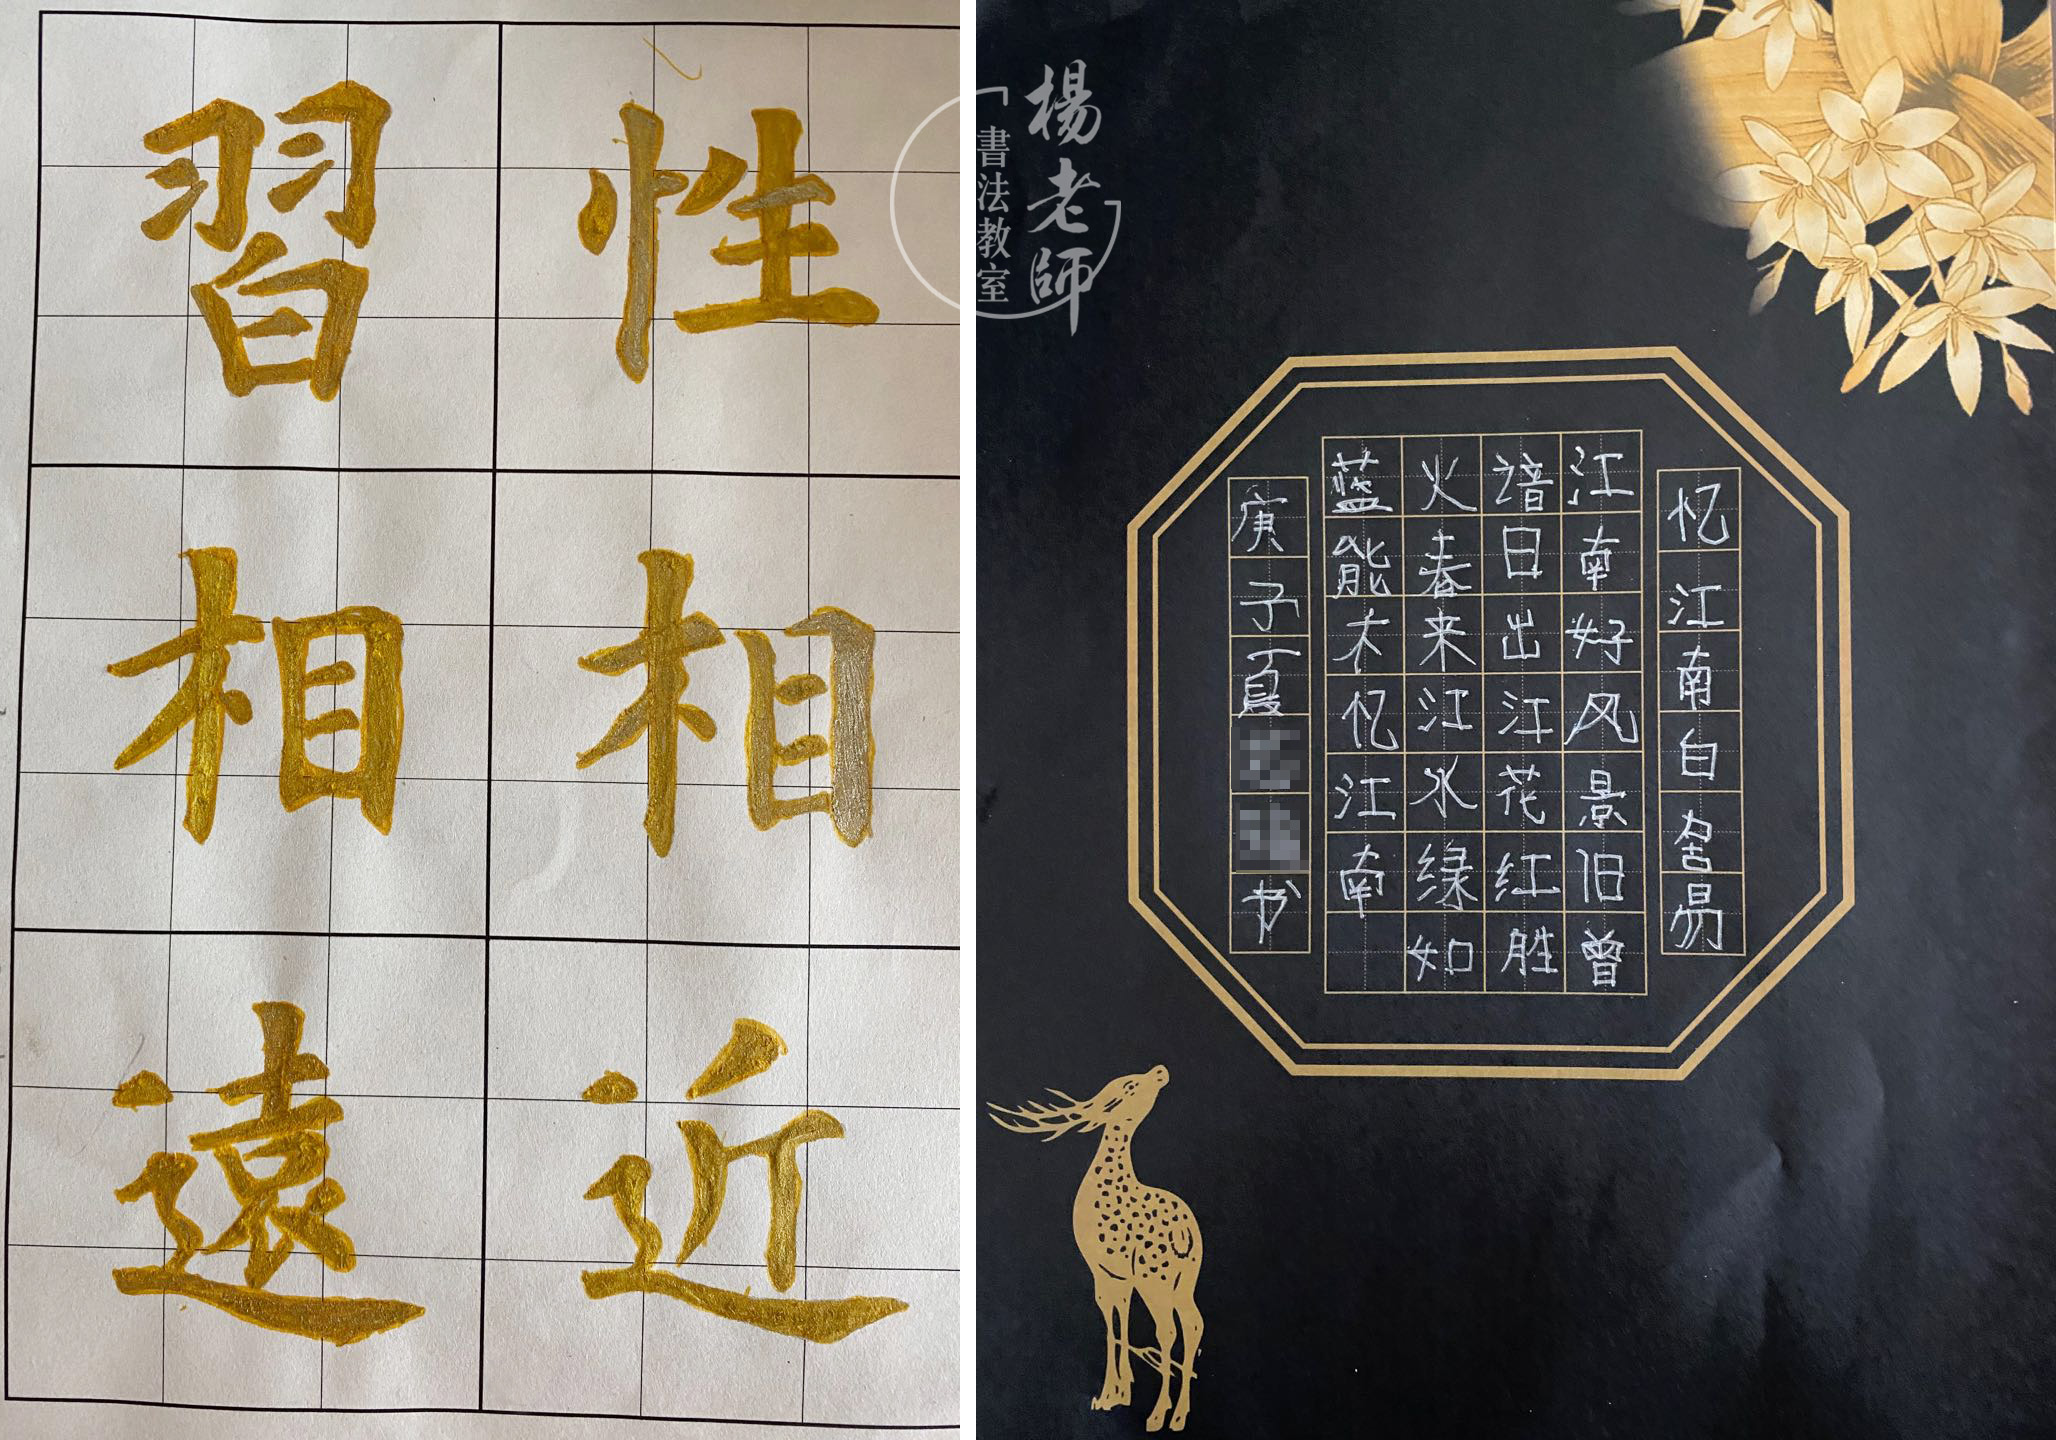 性相近
習相遠
楊老師
「書法教室」
忆江南白居易
江南好风景旧曾
谙日出江花红胜
火春来江水绿如
蓝能不忆江南
庚子夏书